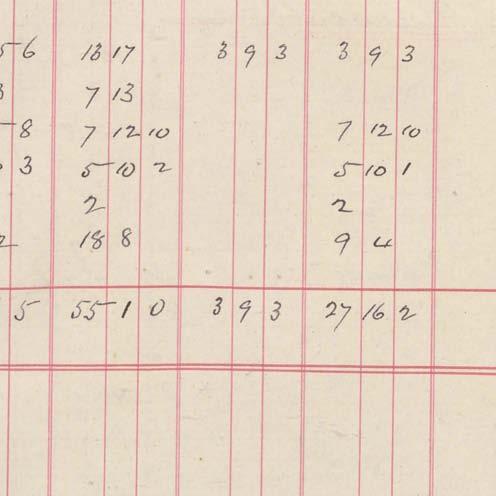 5 6 13 17 3 9 3 3 9 3
3 7 13
5 8 7 12 10 7 12 10
3 5 10 2 5 10 1
2 2
2 18 8 9 4
5 55 1 0 3 9 3 27 16 2